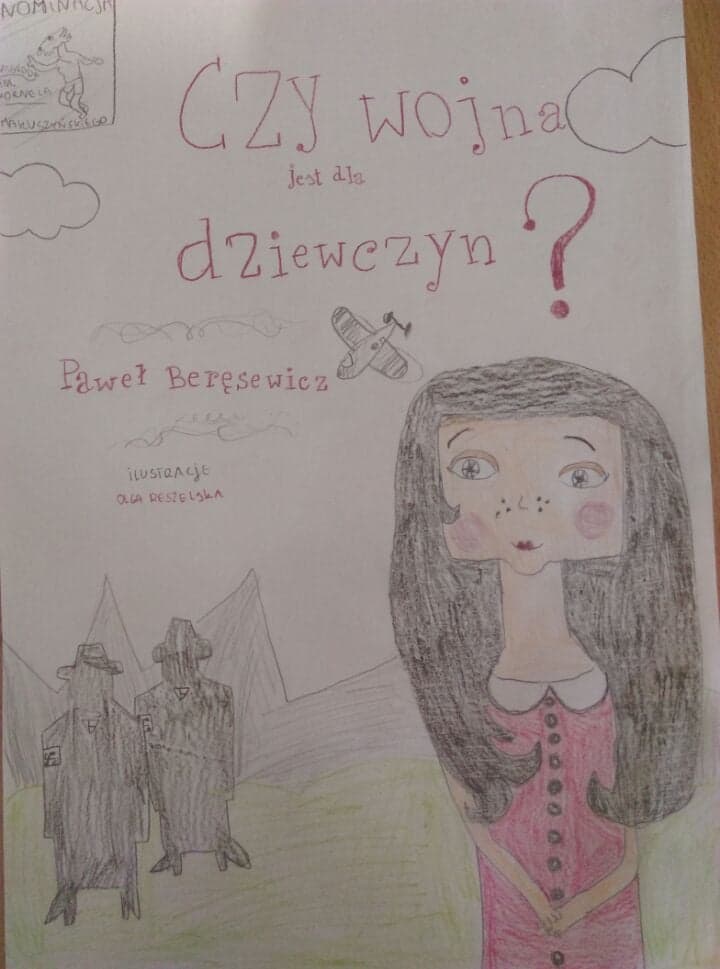 NOMINACJA
IM.
KORNELA
MAKUSZYŃSKIEGO
Czy wojna
jest dla
dziewczyn?
Paweł Beręsewicz
ilustracje
OLGA RESZELSKA